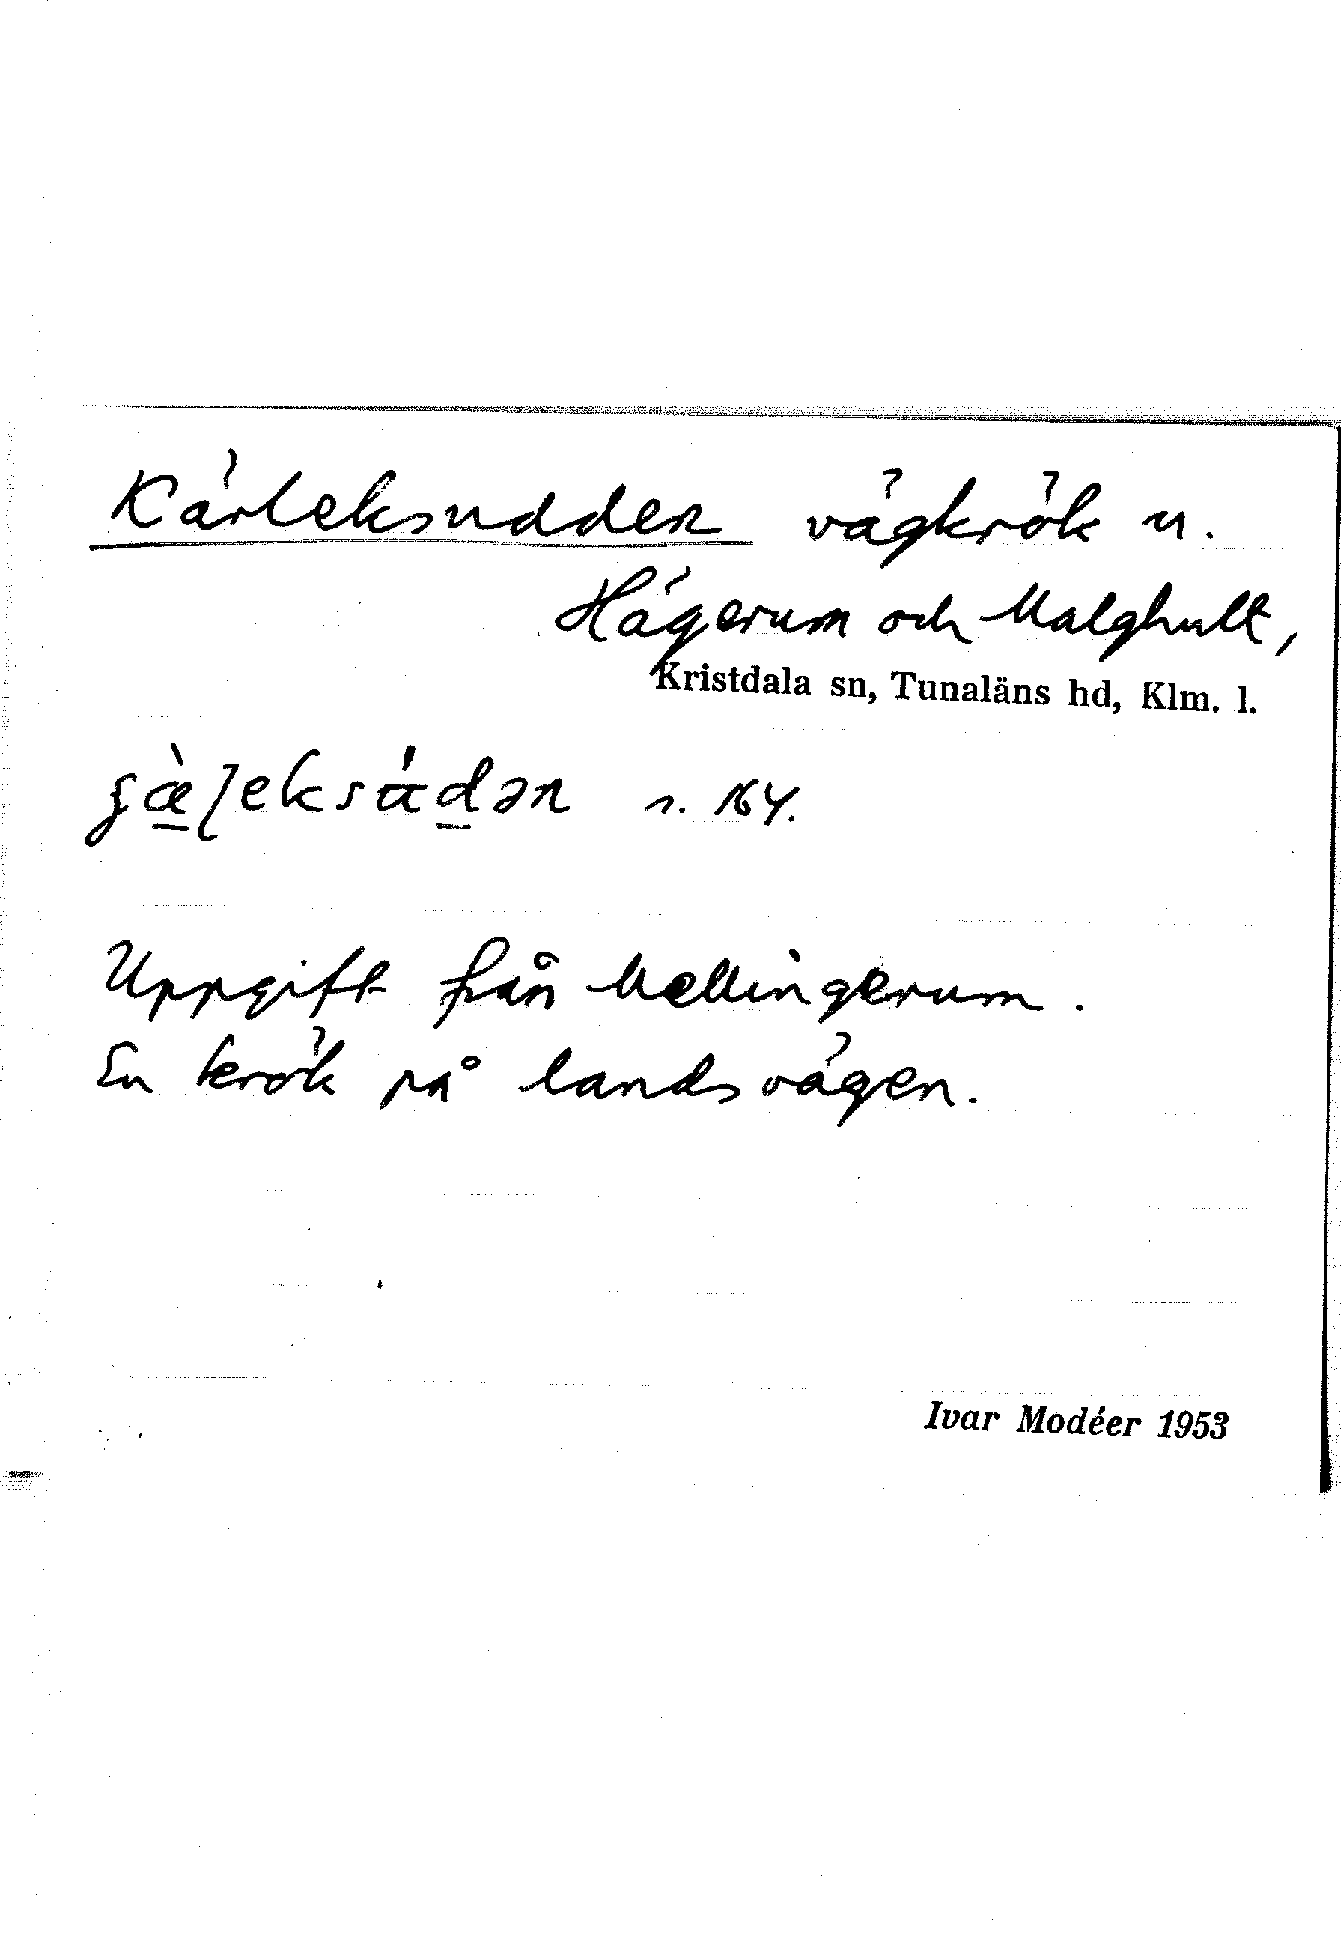 Kärleksudden vägkrök u.
Hägerum och Malghult,
Kristdala sn, Tunaläns hd, Klm. l.
s. 164.
Uppgift från Mellingerum.
En krök på landsvägen.
Ivar Modéer 1953